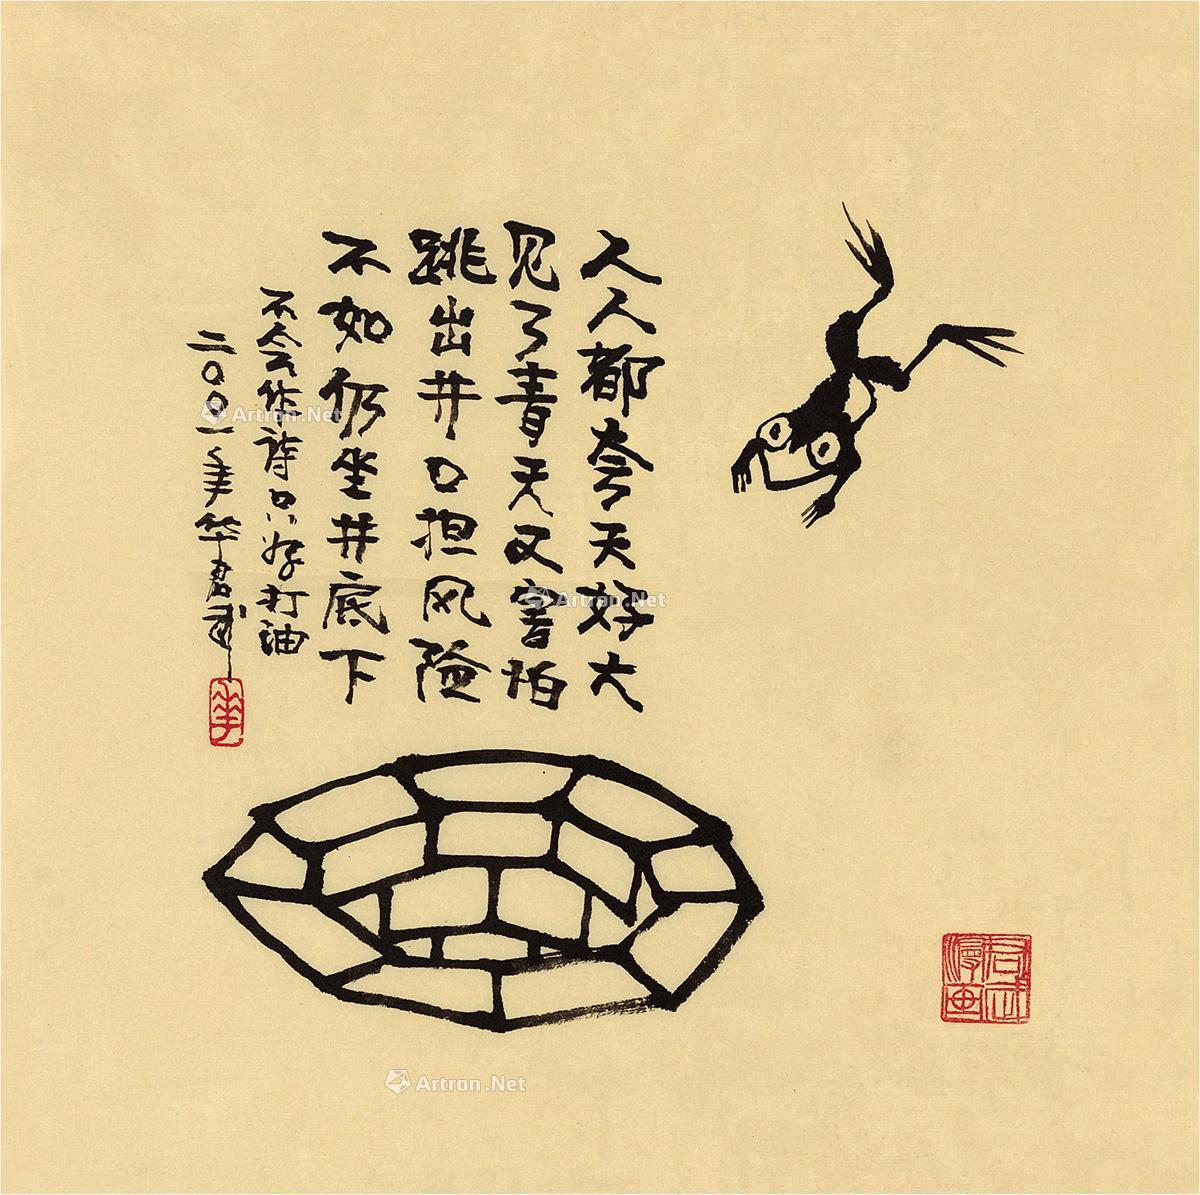 人人都夸天好大
见了青天又害怕
跳出井口担风险
不如仍坐井底下
不会作诗只好打油
二〇〇一年华君武
华
君武漫画
Artron.Net
Artron.Net
Artron.Net